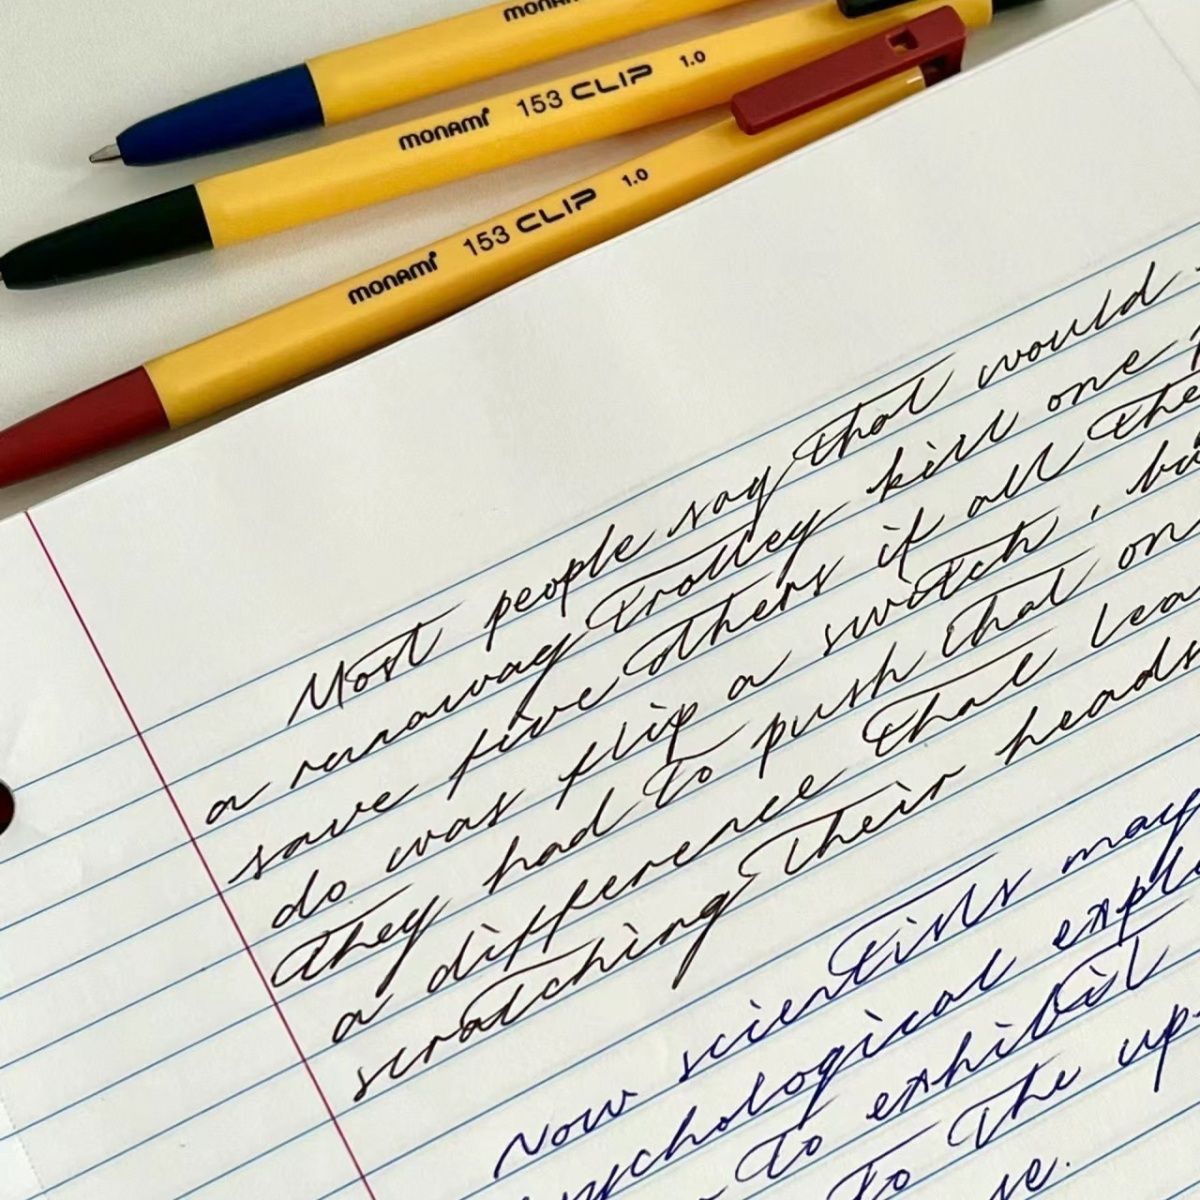 monami
monami 153 CLIP 1.0
monami 153 CLIP 1.0
Most people say that would
a runaway trolley kill one
save five others if all the
do was flip a switch,
they had to push that on
a difference that
scratching their heads
Now scientists may
psychological
to exhibit
to the up-